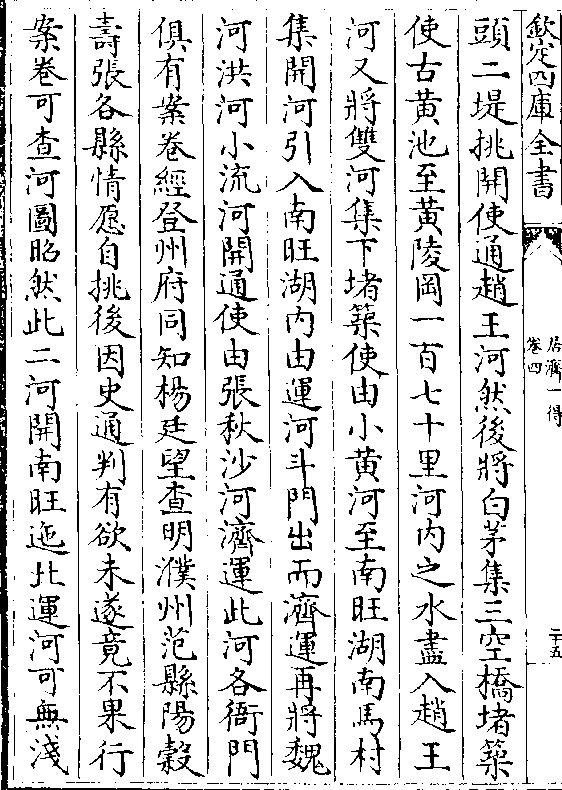 欽定四庫全書
居濟一得
卷四
二十五
頭二堤挑開使通趙王河然後將白茅集三空橋堵築
使古黄池至黄陵岡一百七十里河内之水盡入趙王
河又將雙河集下堵築使由小黄河至南旺湖南馬村
集開河引入南旺湖内由運河斗門出而濟運再將魏
河洪河小流河開通使由張秋沙河濟運此河各衙門
俱有案卷經登州府同知楊廷望查明濮州范縣陽穀
壽張各縣情愿自挑後因史通判有欲未遂竟不果行
案卷可查河圖昭然此二河開南旺迤北運河可無淺